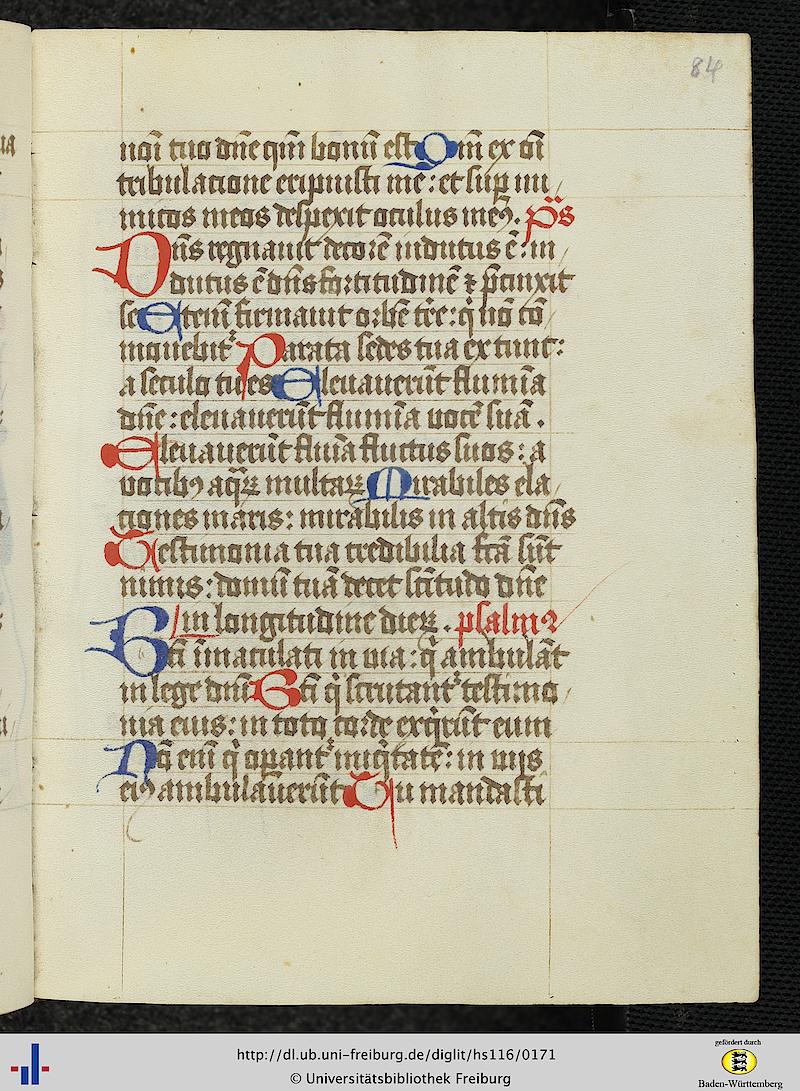 84
noī tuo dn̄e qm̄ bonū est Qm̄ ex oī
tribulacione eripuisti me : et sup̄ ini
micos meos despexit oculus meꝰ . ps̄
Dn̄s regnauit decorē indutus ē : in
dutus ē dn̄s fortitudinē ⁊ p̄cinxit
se Eteni᷑ firmauit orbē tr̄e : q̇ nō cō
mouebit᷑ Parata sedes tua ex tunc :
a seculo tu es Eleuauerūt flumīa
dn̄e : eleuauerūt flumīa uocē suā .
Eleuauerūt fluīa fluctus suos : a
vocibꝰ aqr̄ꝝ multaꝝ Mirabiles ela
ciones maris : mirabilis in altis dn̄s
Testimonia tua credibilia fc̄a sūt
nimis : domū tuā decet sc̄itudo dn̄e
in longitudine dieꝝ . psalmꝰ
Bt̄i īmaculati in uia : q̇ ambulāt
in lege dn̄i Bt̄i q̇ scrutant᷑ testimo
nia eius : in toto corde exq̇rūt eum
Nō eni᷑ q̇ opant᷑ iniq̇tatē : in uijs
eiꝰ ambulauerūt Tu mandasti
http://dl.ub.uni-freiburg.de/diglit/hs116/0171
© Universitätsbibliothek Freiburg
gefördert durch
Baden-Württemberg